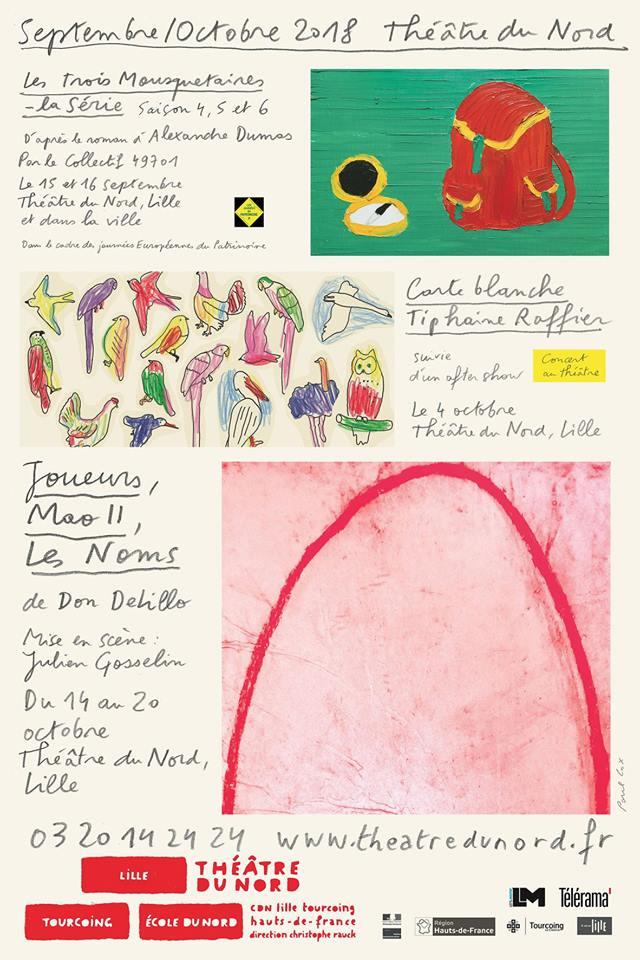 Septembre/Octobre 2018 Théâtre du Nord
Les Trois Mousquetaires
-la Série Saison 4, 5 et 6
D'après le roman d'Alexandre Dumas
Par le Collectif 49701
Le 15 et 16 septembre
Théâtre du Nord, Lille
et dans la ville
Dans le cadre des journées Européennes du Patrimoine
Carte blanche
Tiphaine Raffier
suivie
d'un after show
Concert
au théâtre
Le 4 octobre
Théâtre du Nord, Lille
Joueurs,
Mao II,
Les Noms
de Don DeLillo
Mise en scène :
Julien Gosselin
Du 14 au 20
octobre
Théâtre du Nord,
Lille
Paul Cox
03 20 14 24 24 www.theatredunord.fr
LILLE
THÉÂTRE
DU NORD
TOURCOING
ÉCOLE DU NORD
CDN lille tourcoing
hauts-de-france
direction christophe rauck
LM
Télérama'
Région
Hauts-de-France
Tourcoing
lille